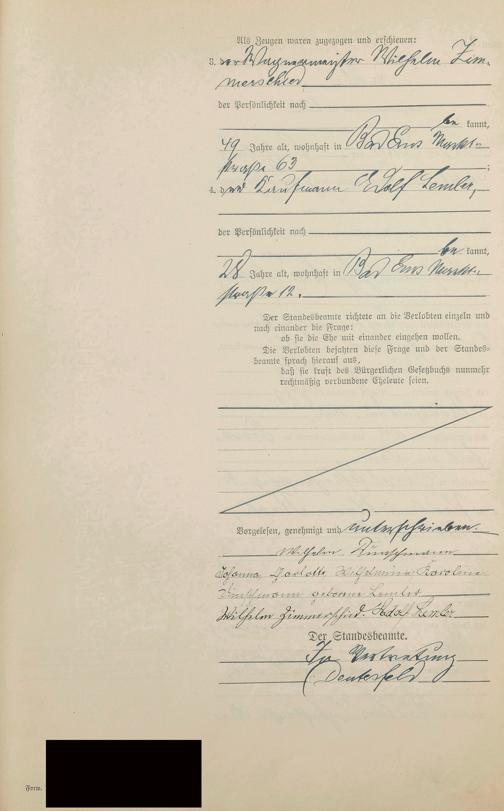 Als Zeugen waren zugezogen und erschienen:
3. der Wagnermeister Wilhelm Zim-
merschied
der Persönlichkeit nach
be kannt,
49 Jahre alt, wohnhaft in Bad Ems Markt-
straße 63 ;
4. der Kaufmann Adolf Lemler,
der Persönlichkeit nach
be kannt,
28 Jahre alt, wohnhaft in Bad Ems Markt-
straße 12.
Der Standesbeamte richtete an die Verlobten einzeln und
nach einander die Frage:
ob sie die Ehe mit einander eingehen wollen.
Die Verlobten bejahten diese Frage und der Standes-
beamte sprach hierauf aus,
daß sie kraft des Bürgerlichen Gesetzbuchs nunmehr
rechtmäßig verbundene Eheleute seien.
Vorgelesen, genehmigt und unterschrieben.
Wilhelm
Johanna Charlotte Wilhelmine Karoline
geborene Lemler
Wilhelm Zimmerschied. Adolf Lemler
Der Standesbeamte.
In Vertretung
Form.